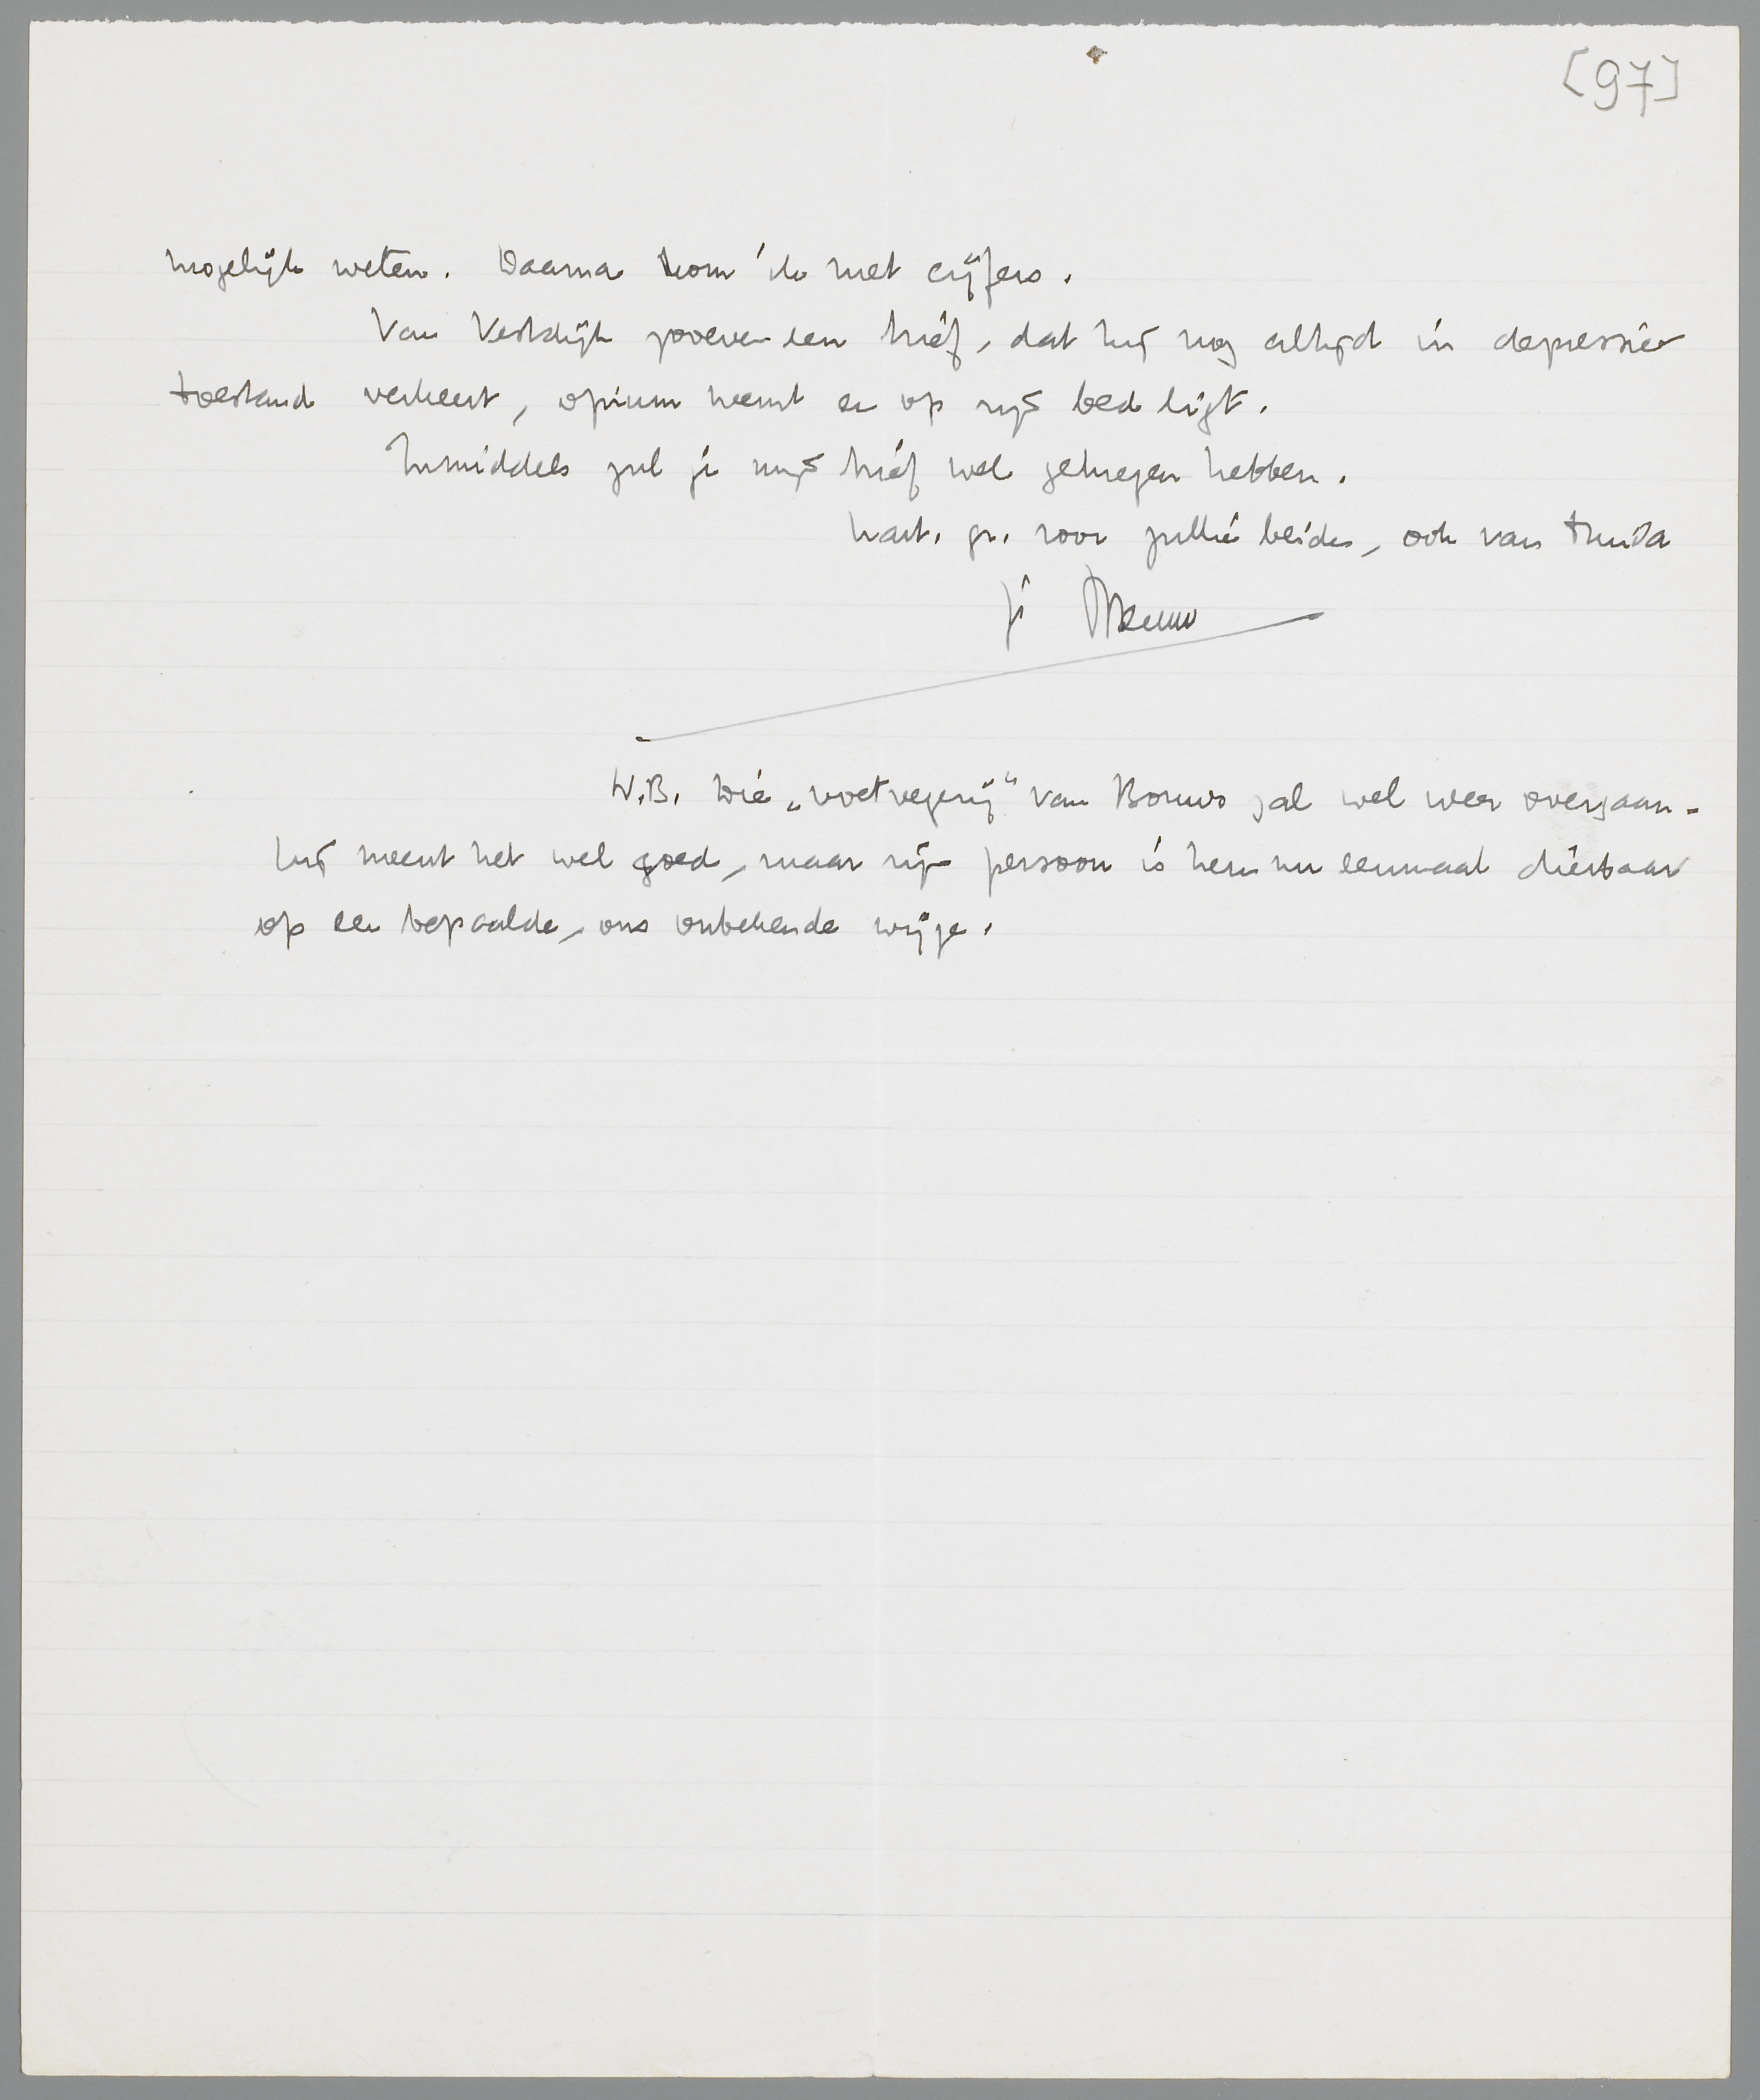 [97]
mogelijk weten. Daarna kom ik met cijfers.
Van Vestdijk zooeven een brief, dat hij nog altijd in depressie-
toestand verkeert, opium neemt en op zijn bed ligt.
Inmiddels zul je mijn brief wel gekregen hebben.
hart. gr. voor jullie beiden, ook van Truida
je Menno
N.B. Die „voetvegerij" van Bouws zal wel weer overgaan.
Hij meent het wel goed, maar zijn persoon is hem nu eenmaal dierbaar
op een bepaalde, ons onbekende wijze.